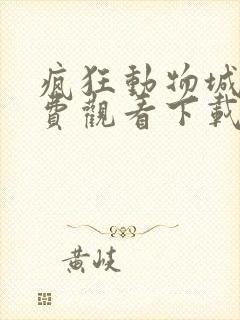 瘋狂動物城
費觀看下載
黃岐